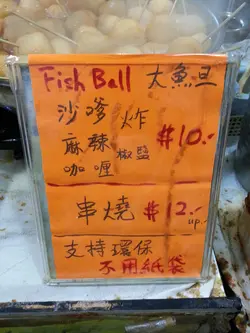 Fish Ball 大魚旦
沙嗲 炸
麻辣 椒鹽 #10.-
咖喱
串燒 #12.-
up.
支持環保
不用紙袋